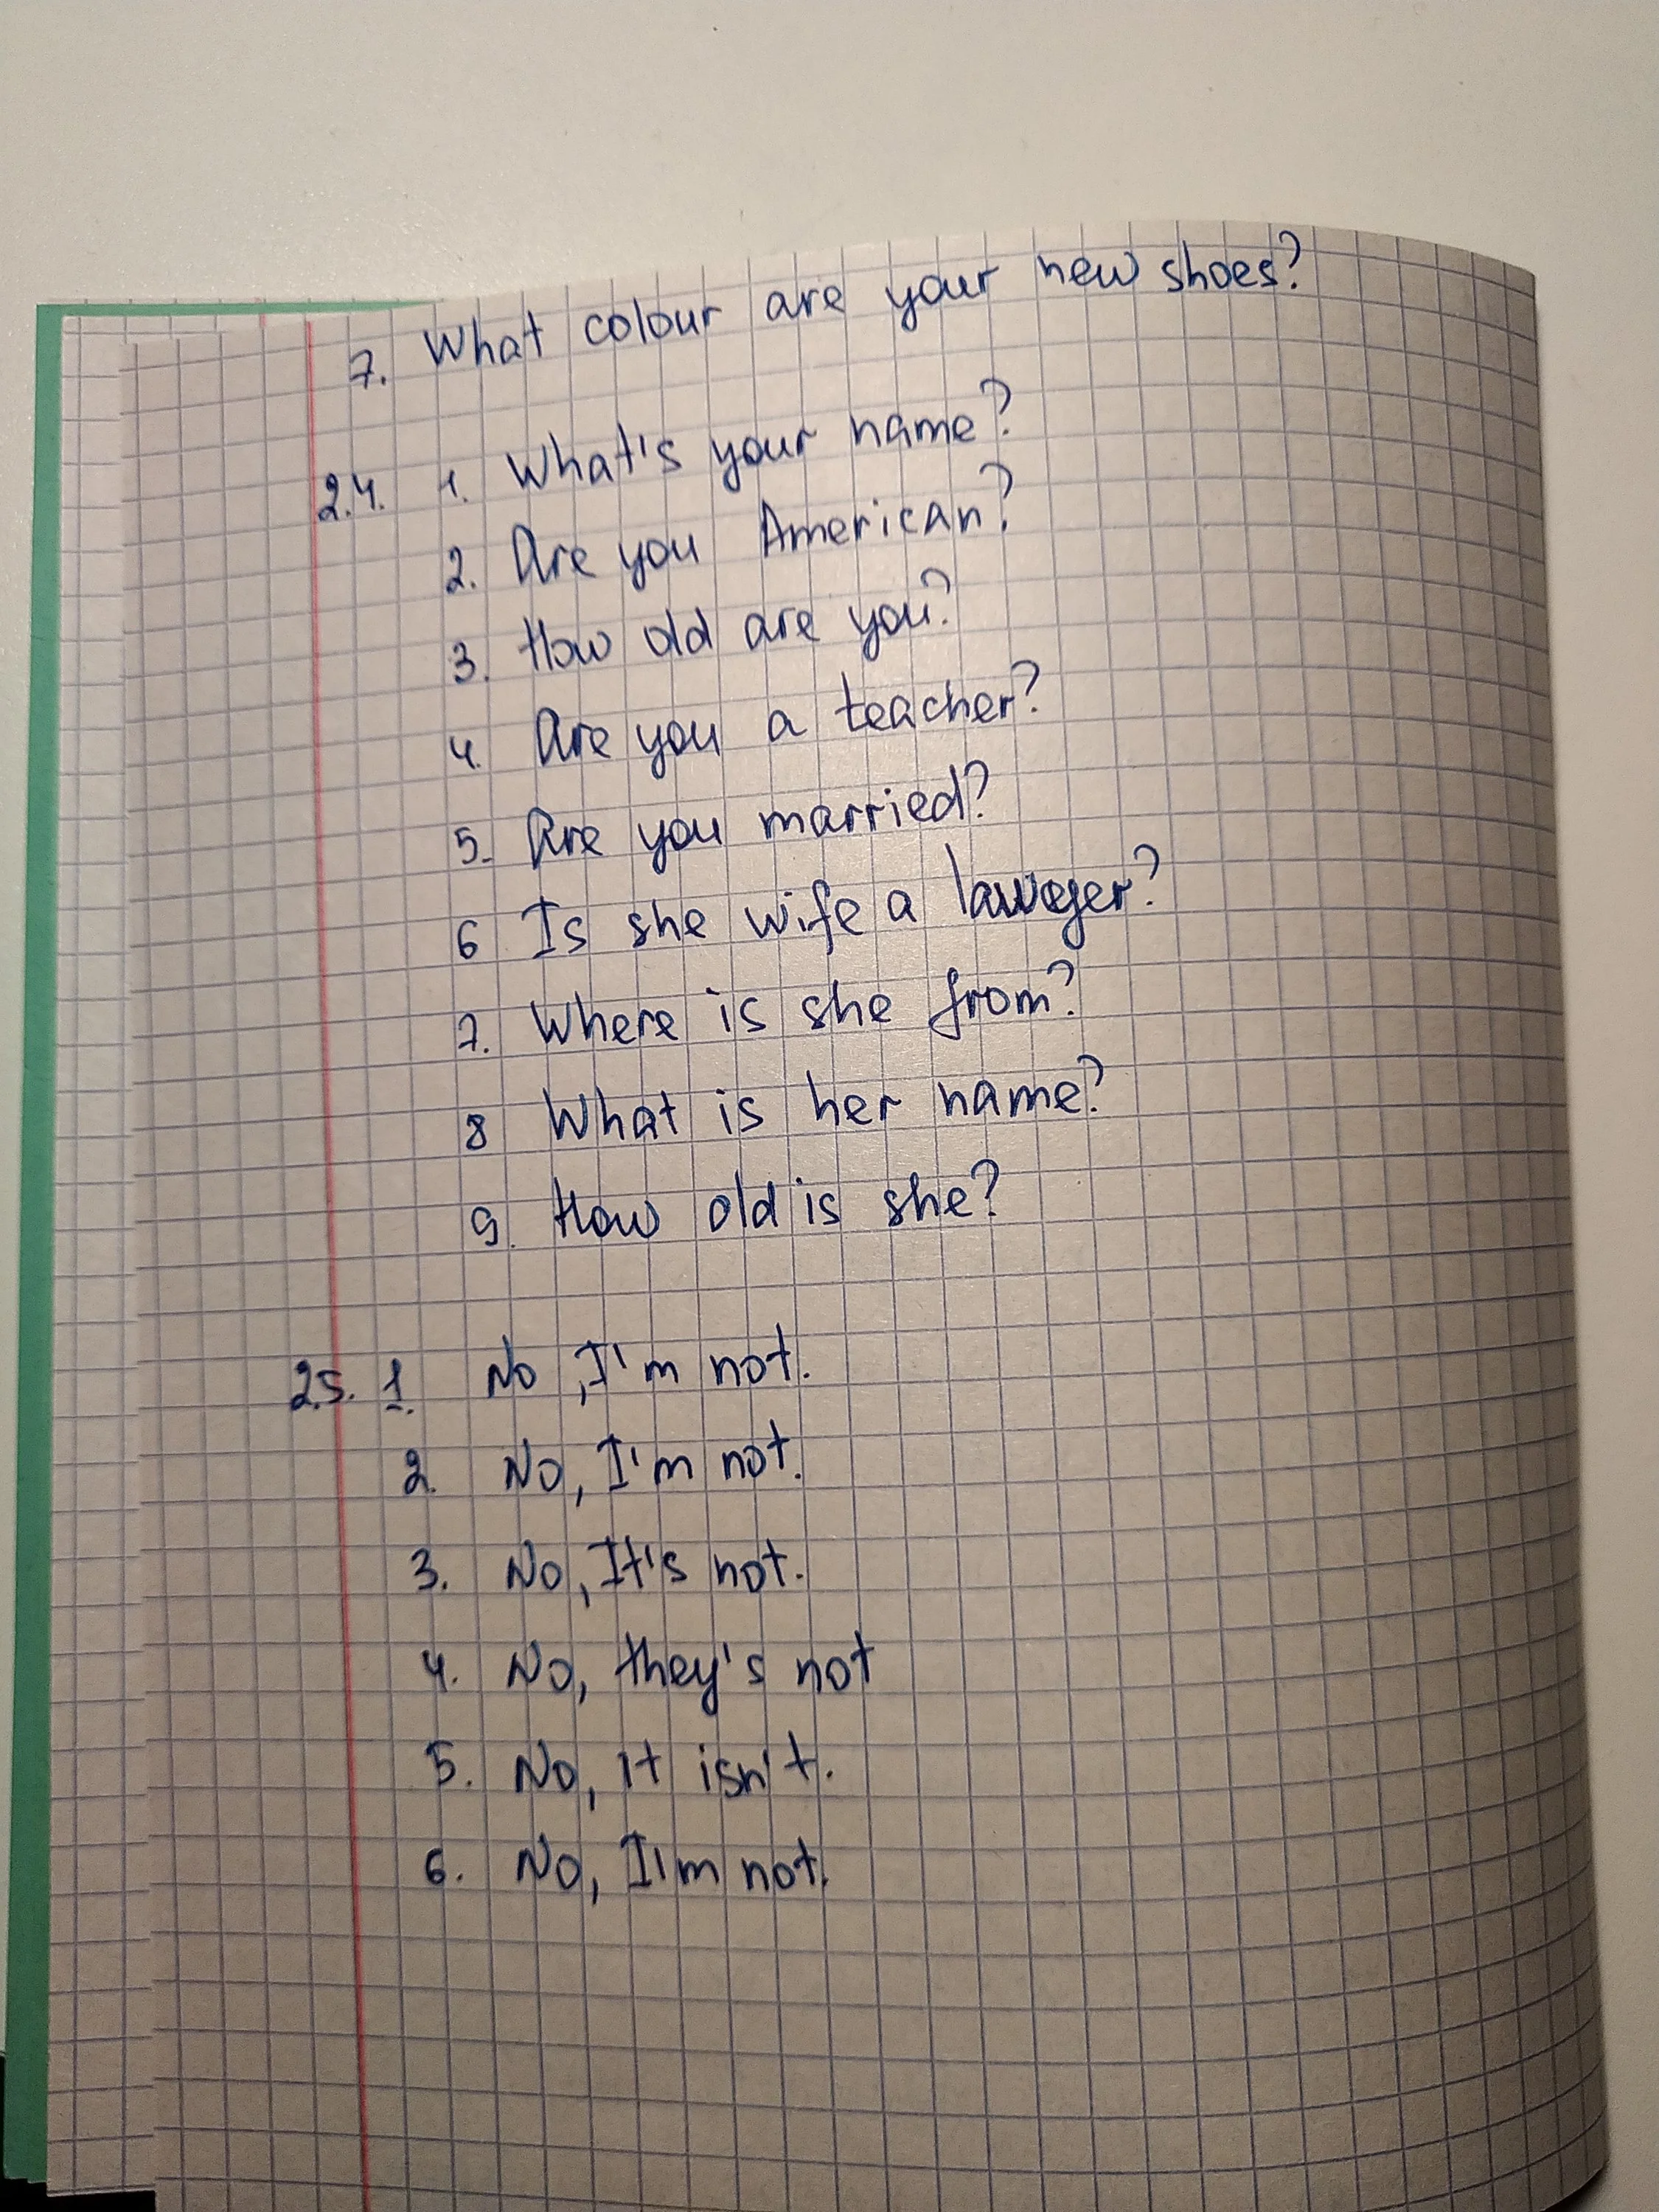 7. What colour are your new shoes?
2.4. 1. What's your name?
2. Are you American?
3. How old are you?
4. Are you a teacher?
5. Are you married?
6 Is she wife a lawyer?
7. Where is she from?
8 What is her name?
9. How old is she?
2.5. 1. No, I'm not.
2. No, I'm not.
3. No, It's not.
4. No, they's not
5. No, it isn't.
6. No, I'm not.